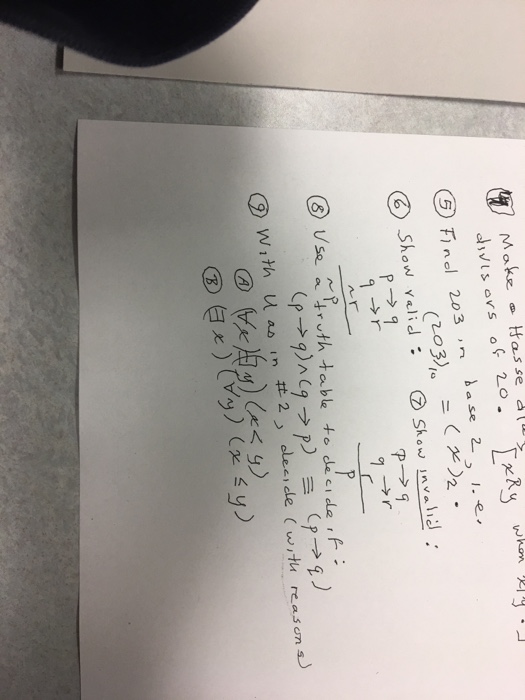 ④ Make a Hasse
divisors of 20. [xRy when x|y.]
⑤ Find 203 in base 2, i.e.
(203)₁₀ = (x)₂.
⑥ Show valid: ⑦ Show invalid:
p→q p→q
q→r q→r
~r r
~p p
⑧ Use a truth table to decide if:
(p→q)∧(q→p) ≡ (p→q)
⑨ With U as in #2, decide (with reasons)
Ⓐ (∀x)(∃y)(x<y)
Ⓑ (∃x)(∀y)(x≤y)